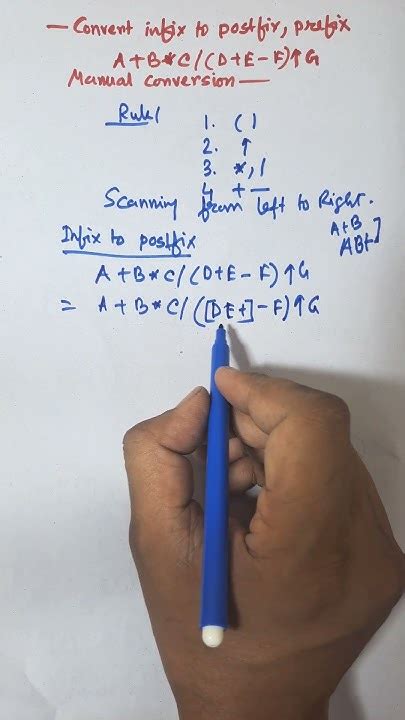 — Convent infix to postfix, prefix
A+B*C/(D+E-F)↑G
Manual conversion —
Rule/
1. ( )
2. ↑
3. *, /
4 + —
Scanning from left to Right.
A+B
AB+]
Infix to postfix
A+B*C/(D+E-F)↑G
= A+B*C/([DE+]-F)↑G